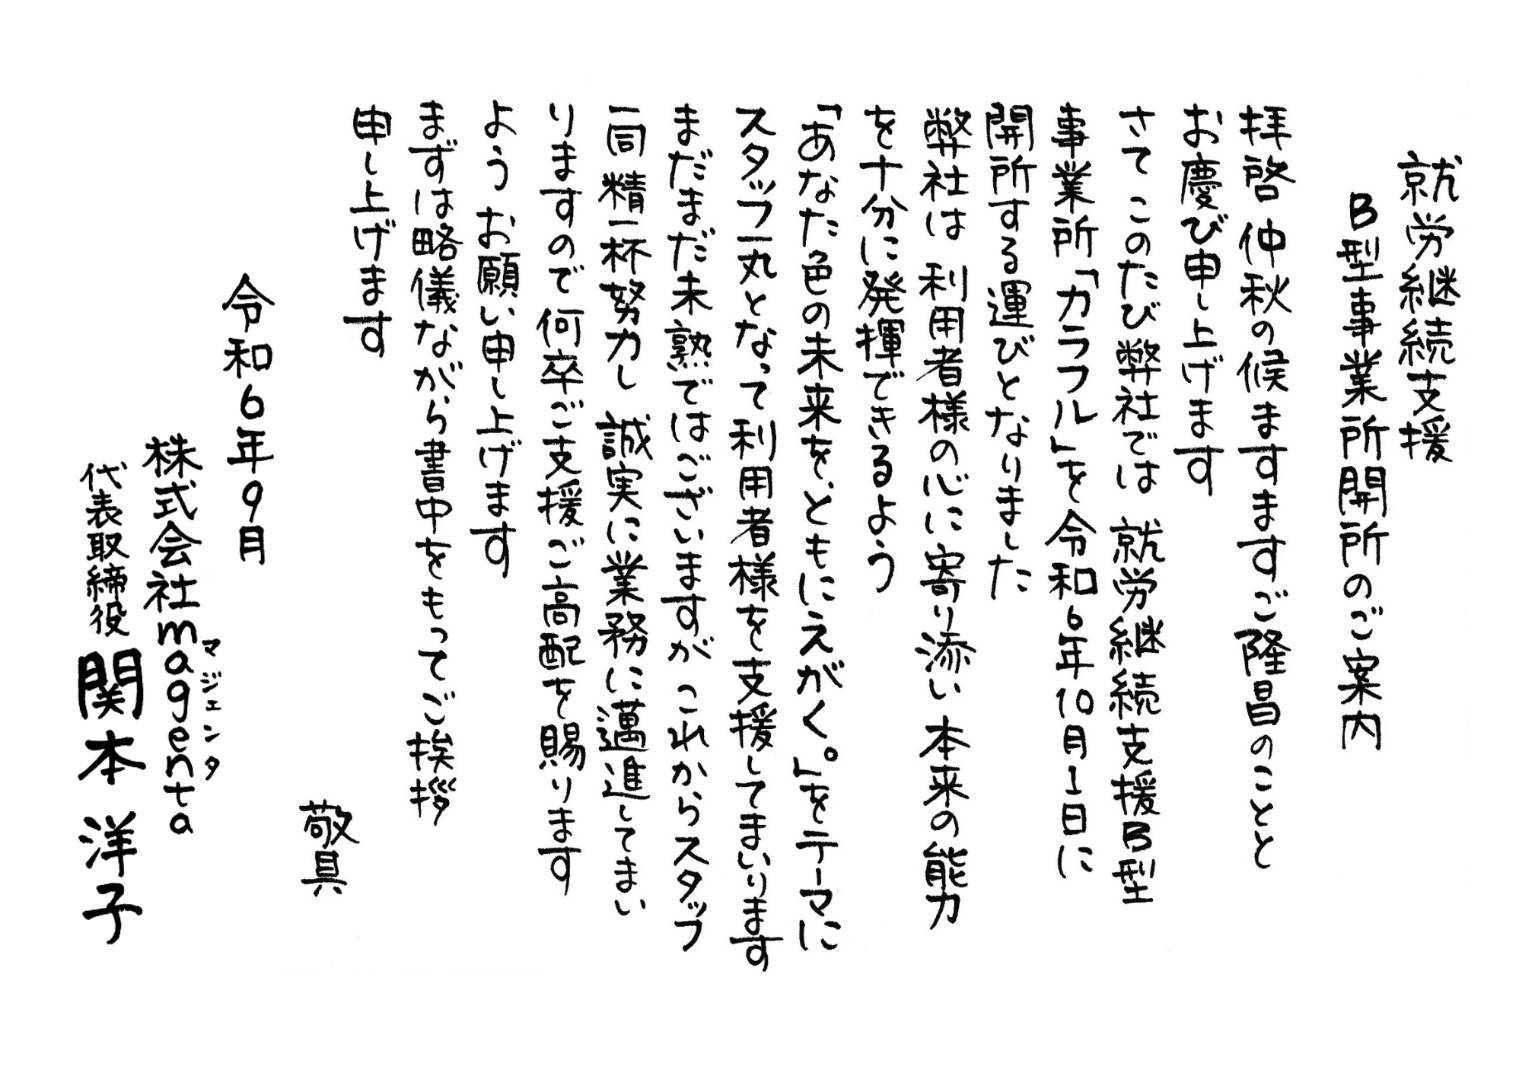 就労継続支援
B型事業所開所のご案内
拝啓 仲秋の候ますますご隆昌のことと
お慶び申し上げます
さて このたび弊社では 就労継続支援B型
事業所「カラフル」を令和6年10月1日に
開所する運びとなりました
弊社は 利用者様の心に寄り添い 本来の能力
を十分に発揮できるよう
「あなた色の未来を、ともにえがく。」をテーマに
スタッフ一丸となって利用者様を支援してまいります
まだまだ未熟ではございますが これからスタッフ
一同精一杯努力し 誠実に業務に邁進してまい
りますので何卒ご支援ご高配を賜ります
よう お願い申し上げます
まずは略儀ながら書中をもってご挨拶
申し上げます
敬具
令和6年9月
株式会社magenta
マジェンタ
代表取締役 関本 洋子